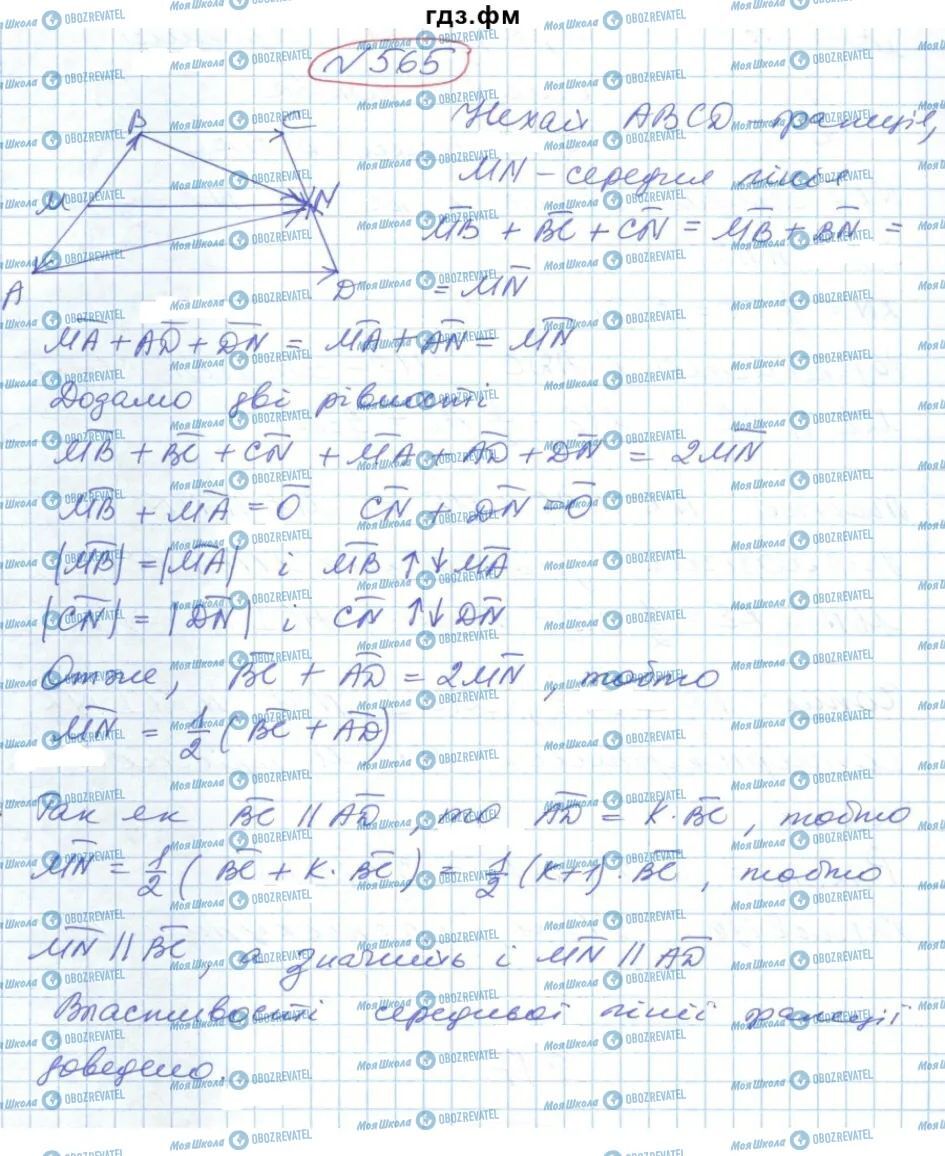 гдз.фм
№565
B C
M N
A D
Нехай ABCD – трапеція,
MN – середня лінія
M̅B̅ + B̅C̅ + C̅N̅ = M̅B̅ + B̅N̅ =
= M̅N̅
M̅A̅ + A̅D̅ + D̅N̅ = M̅A̅ + A̅N̅ = M̅N̅
Додамо дві рівності
M̅B̅ + B̅C̅ + C̅N̅ + M̅A̅ + A̅D̅ + D̅N̅ = 2M̅N̅
M̅B̅ + M̅A̅ = 0̅ C̅N̅ + D̅N̅ = 0̅
|M̅B̅| = |M̅A̅| і M̅B̅ ↑↓ M̅A̅
|C̅N̅| = |D̅N̅| і C̅N̅ ↑↓ D̅N̅
Отже, B̅C̅ + A̅D̅ = 2M̅N̅, тобто
M̅N̅ = 1/2 (B̅C̅ + A̅D̅)
Так як B̅C̅ || A̅D̅, то A̅D̅ = K · B̅C̅, тобто
M̅N̅ = 1/2 (B̅C̅ + K · B̅C̅) = 1/2 (K+1) · B̅C̅, тобто
M̅N̅ || B̅C̅, а значить і M̅N̅ || A̅D̅
Властивості середньої лінії трапеції
доведено.
МояШкола OBOZREVATEL